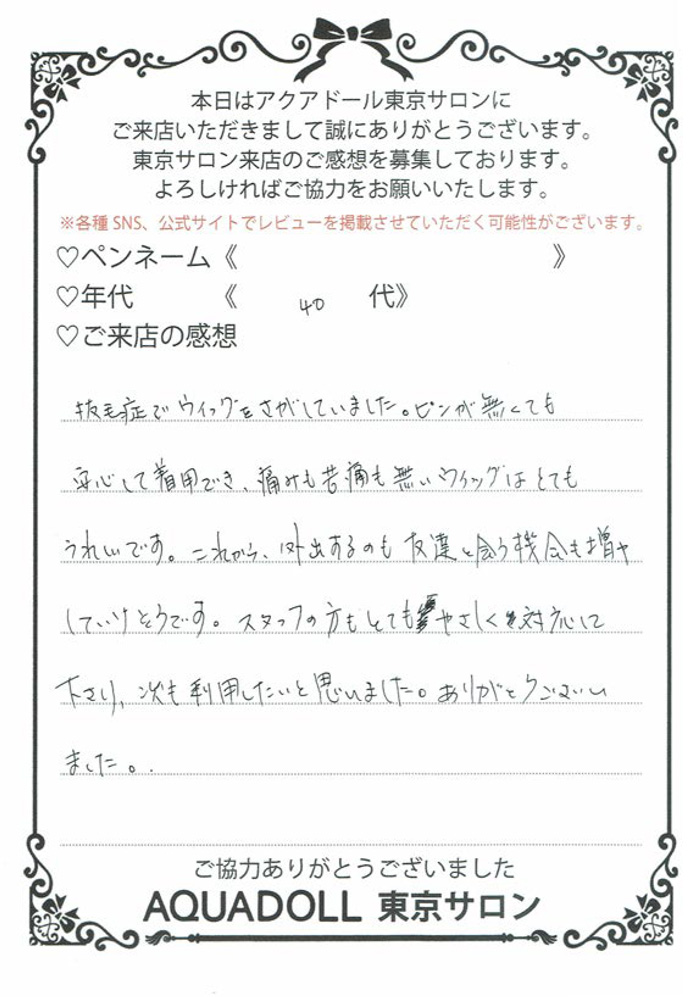 本日はアクアドール東京サロンに
ご来店いただきまして誠にありがとうございます。
東京サロン来店のご感想を募集しております。
よろしければご協力をお願いいたします。
※各種 SNS、公式サイトでレビューを掲載させていただく可能性がございます。
♡ペンネーム《 》
♡年代 《 40 代》
♡ご来店の感想
抜毛症でウィッグをさがしていました。ピンが無くても
安心して着用でき、痛みも苦痛も無いウィッグはとても
うれしいです。これから、外出するのも友達と会う機会も増や
していけそうです。スタッフの方もとてもやさしく対応して
下さり、次も利用したいと思いました。ありがとうございい
ました。.
ご協力ありがとうございました
AQUADOLL 東京サロン